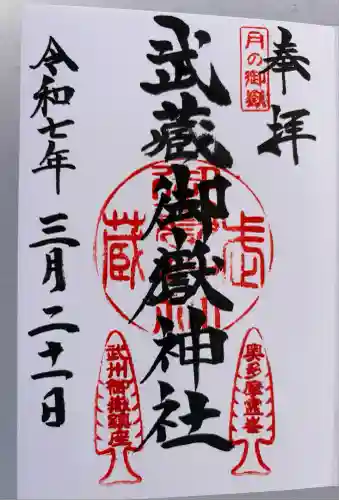 奉拝
月の御嶽
武蔵御嶽神社
奥多摩霊峯
武州御嶽鎮座
令和七年 三月二十一日